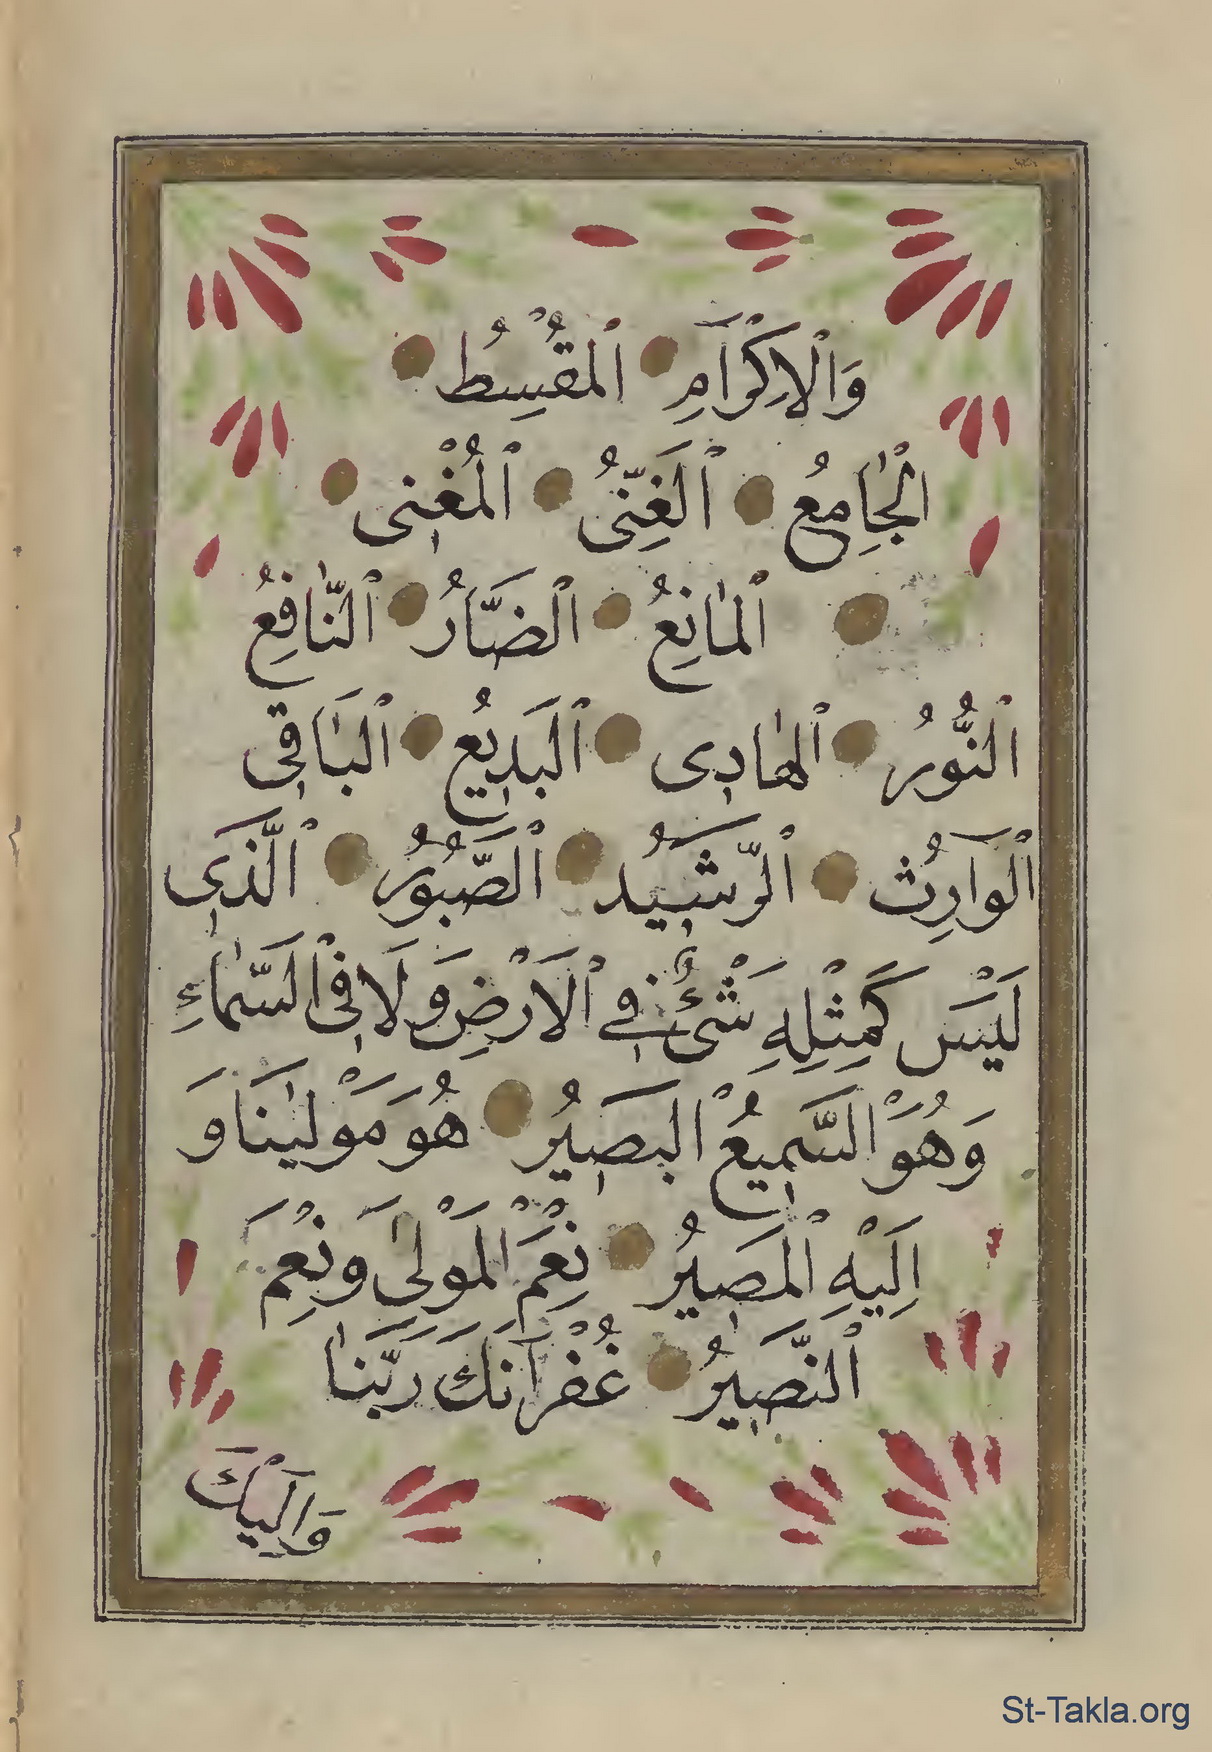 وَالْاِكْرَامِ الْمُقْسِطُ
الْجَامِعُ الْغَنِىُّ الْمُغْنِى
الْمَانِعُ الضَّارُّ النَّافِعُ
النُّورُ الْهَادِى الْبَدِيعُ الْبَاقِى
الْوَارِثُ الرَّشِيدُ الصَّبُورُ الَّذِى
لَيْسَ كَمِثْلِهِ شَىْءٌ فِى الْاَرْضِ وَلَا فِى السَّمَاءِ
وَهُوَ السَّمِيعُ الْبَصِيرُ هُوَ مَوْلٰينَا وَ
اِلَيْهِ الْمَصِيرُ نِعْمَ الْمَوْلٰى وَنِعْمَ
النَّصِيرُ غُفْرَانَكَ رَبَّنَا
وَاِلَيْكَ
St-Takla.org